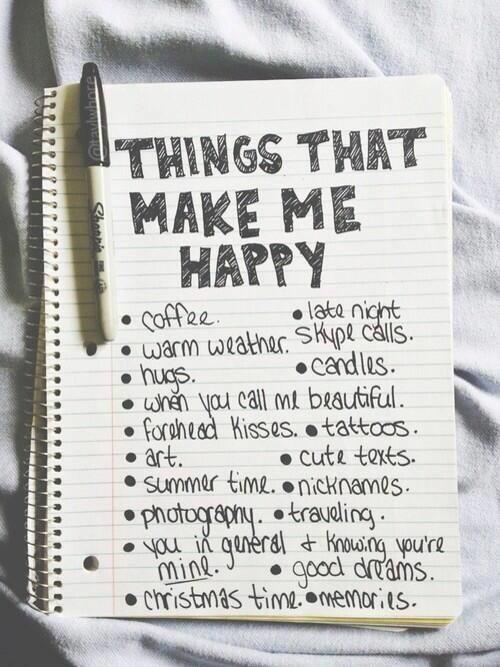 THINGS THAT
MAKE ME
HAPPY
• coffee.
• late night
skype calls.
• warm weather.
• hugs.
• candles.
• when you call me beautiful.
• forehead kisses. • tattoos.
• art.
• cute texts.
• summer time. • nicknames.
• photography. • traveling.
• you in general + knowing you're
mine.
• good dreams.
• christmas time. • memories.
Sharpie